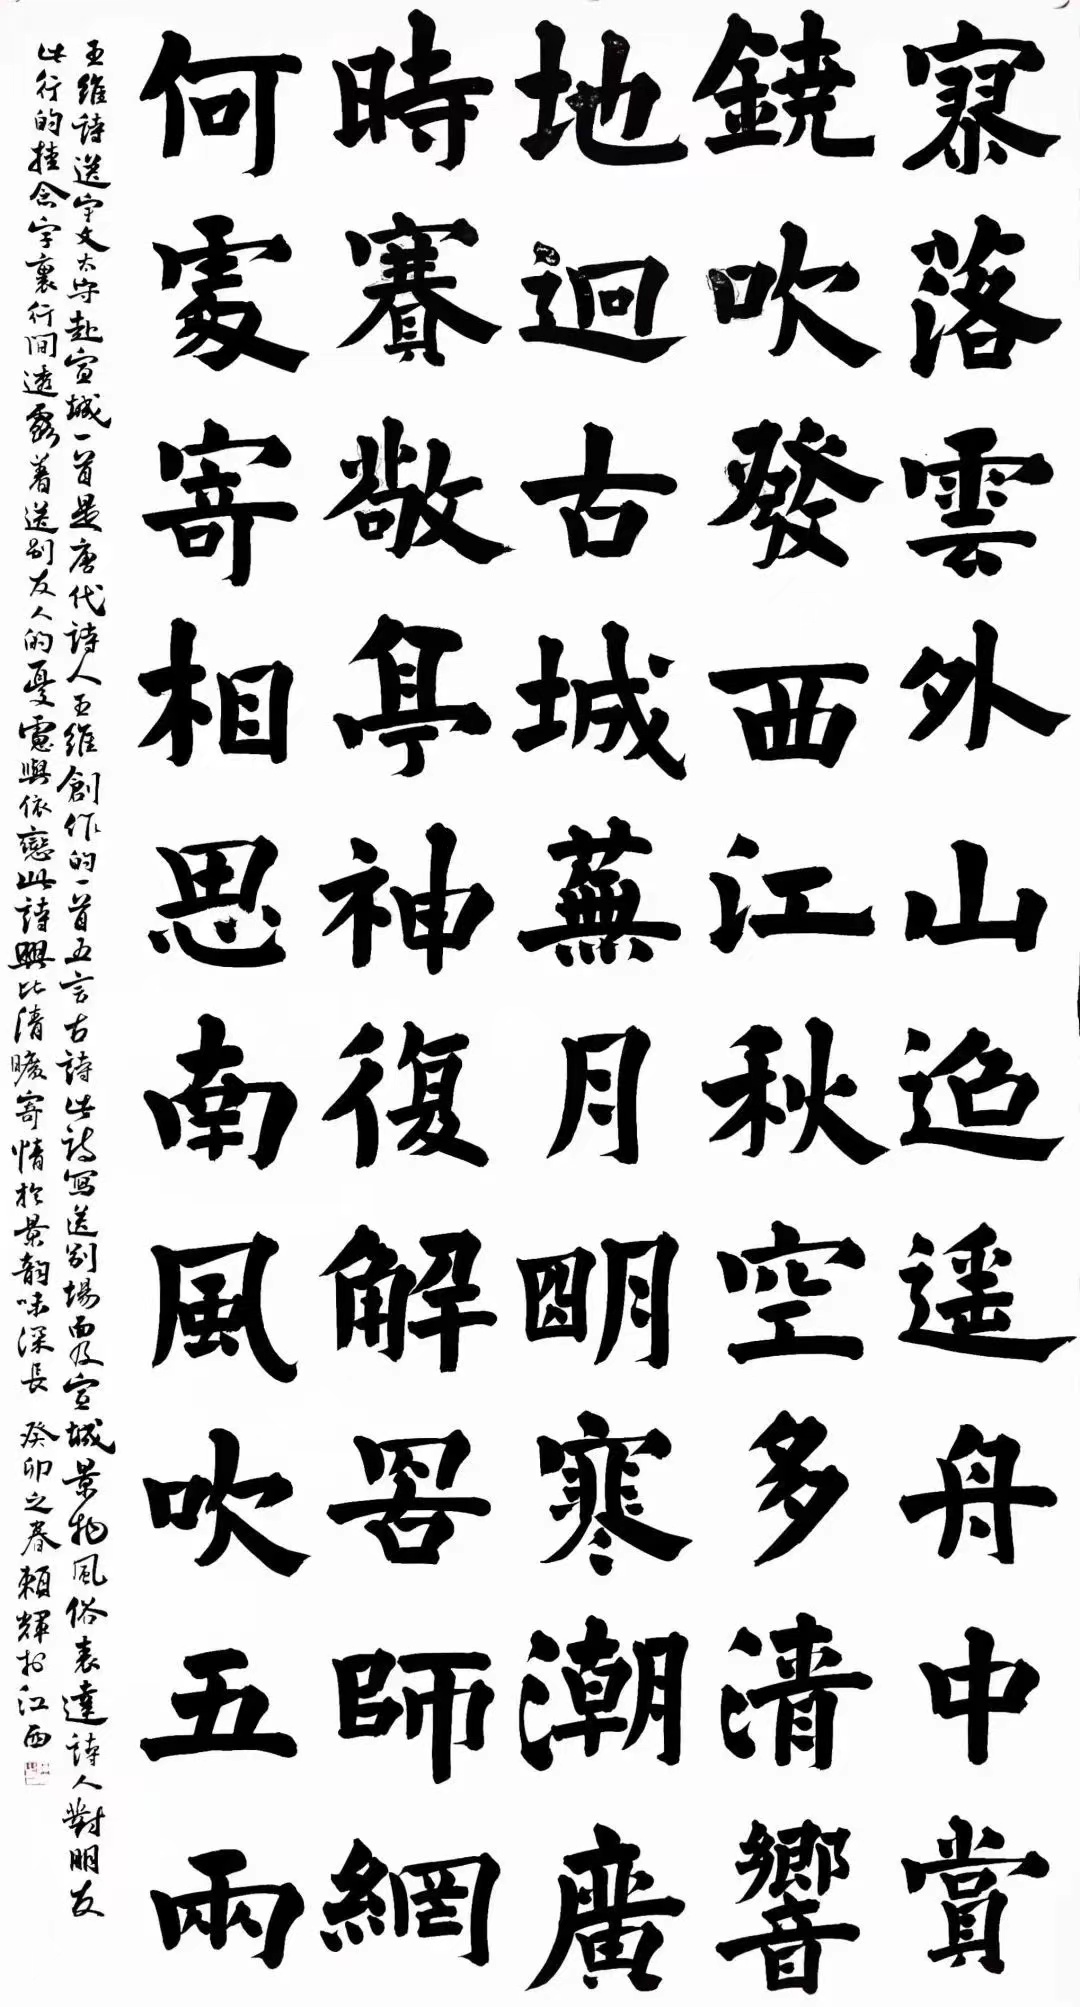 寮落雲外山迢遥舟中賞
鐃吹發西江秋空多清響
地迥古城蕪月明寒潮廣
時賽敬亭神復解罟師網
何處寄相思南風吹五兩
王維詩送宇文太守赴宣城一首是唐代詩人王維創作的一首五言古詩此詩寫送别場面及宣城景物風俗表達詩人對朋友
此行的挂念字裏行間透露着送别友人的憂慮與依戀此詩興比清曠寄情於景韵味深長 癸卯之春賴輝於江西